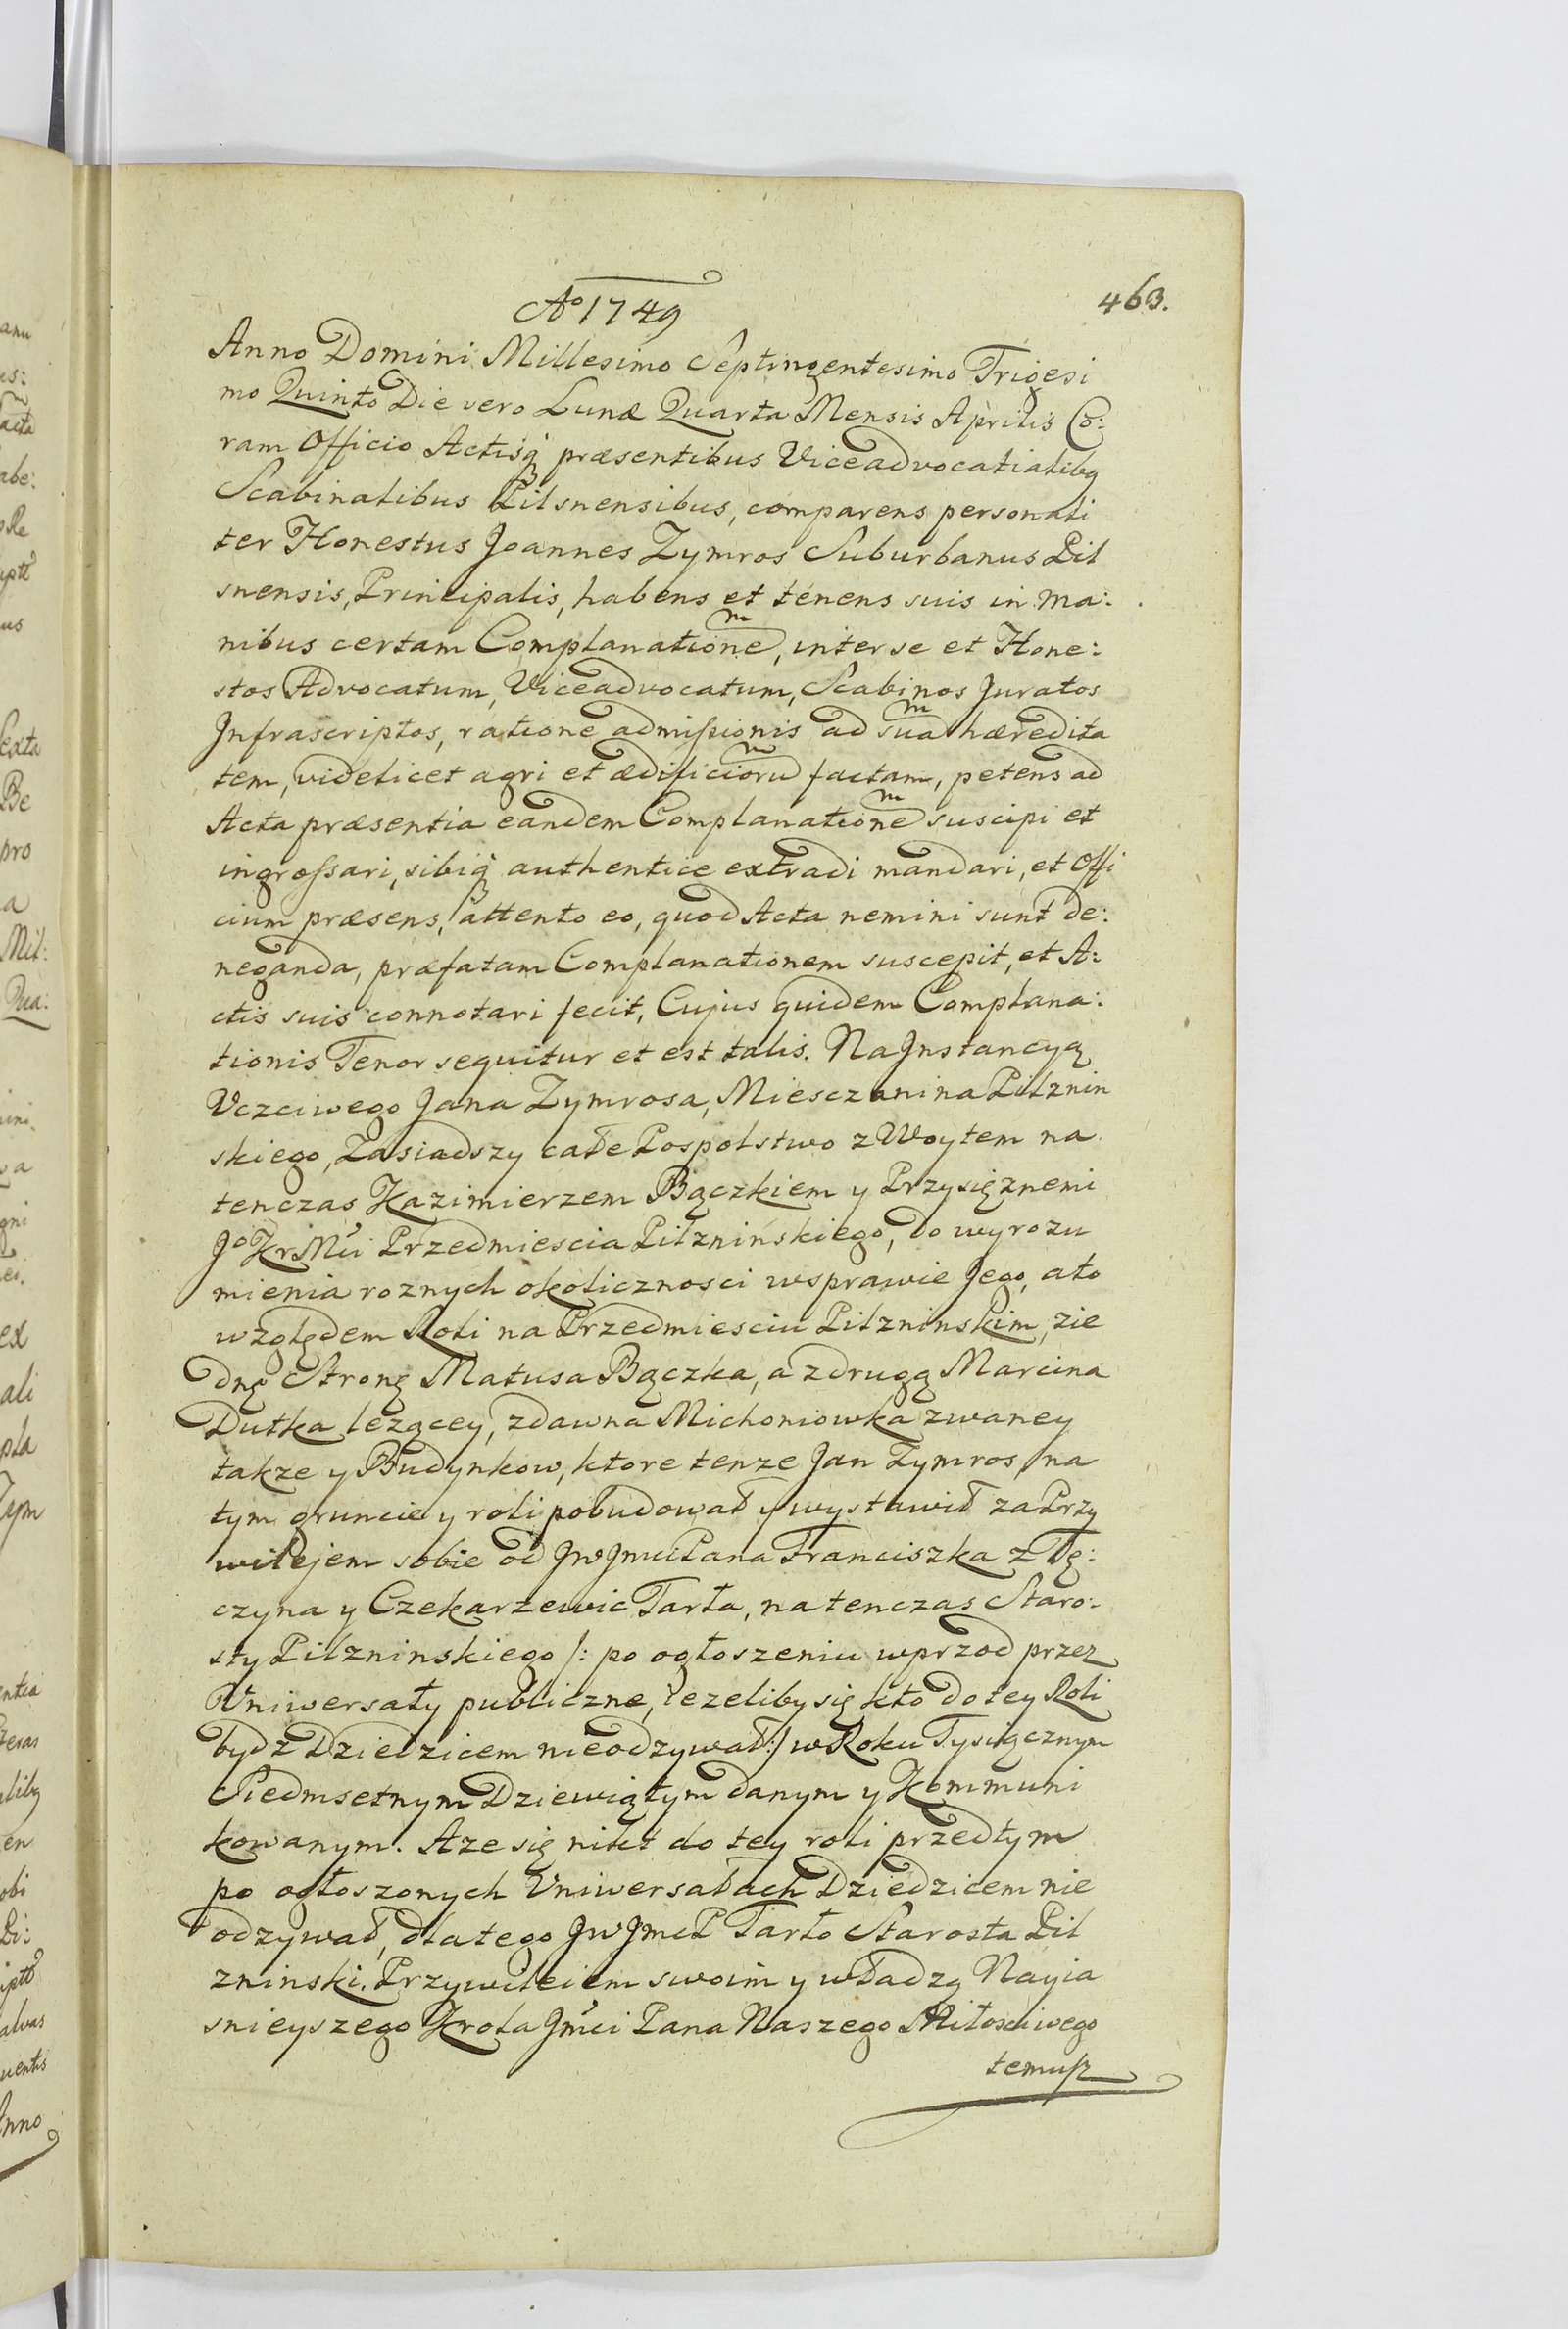 463.
Aº 1749
Anno Domini Millesimo Septingentesimo Trigesi
mo Quinto Die vero Lunæ Quarta Mensis Aprilis Co:
ram Officio Actisq̃ præsentibus Viceadvocatialibq
Scabinalibus Pilsnensibus, comparens personali
ter Honestus Joannes Zymros Suburbanus Pil
snensis, Principalis, habens et tenens suis in ma:
nibus certam Complanationem, inter se et Hone:
stos Advocatum, Viceadvocatum, Scabinos Juratos
Infrascriptos, ratione admissionis ad suam hæredita
tem, videlicet agri et ædificiorum factam, petens ad
Acta præsentia eandem Complanationem suscipi et
ingrossari, sibiq̃ authentice extradi mandari, et Offi
cium præsens, attento eo, quod Acta nemini sunt de:
neganda, præfatam Complanationem suscepit, et A:
ctis suis connotari fecit, Cujus quidem Complana:
tionis Tenor sequitur et est talis. Na Jnstancyą
Vczciwego Jana Zymrosa, Miesczanina Pilznin
skiego, Zasiadszy całe Pospolstwo z Woytem na
tenczas Kazimierzem Bączkiem y Przysięznemi
Jº Kr Mći Przedmiescia Pilznińskiego, do wyrozu
mienia roznych okolicznosci wsprawie Jego, ato
względem Roli na Przedmiesciu Pilzninskim, zie
dnę Stronę Matusa Bączka, a zdrugą Marcina
Dutka lezącey, zdawna Michoniowka zwaney
takze y Budynkow, ktore tenze Jan Zymros, na
tym gruncie y roli pobudował y wystawił za Przy
wilejem sobie od JW Jmci Pana Franciszka z Tę:
czyna y Czekarzewic Tarła, natenczas Staro:
sty Pilzninskiego /: po ogłoszeniu wprzod przez
Vniwersały publiczne, iezeliby się kto do tey Roli
bydz Dziedzicem nieodzywał :/ w Roku Tysiącznym
Siedmsetnym Dziewiątym danym y Kommuni
kowanym. Aze się nikt do tey roli przedtym
po ogłoszonych Vniwersałach Dziedzicem nie
odzywał, dlatego JW Jmć P Tarło Starosta Pil
zninski. Przywileiem swoim y władzą Nayia
snieyszego Krola Jmći Pana Naszego Miłosciwego
temusz